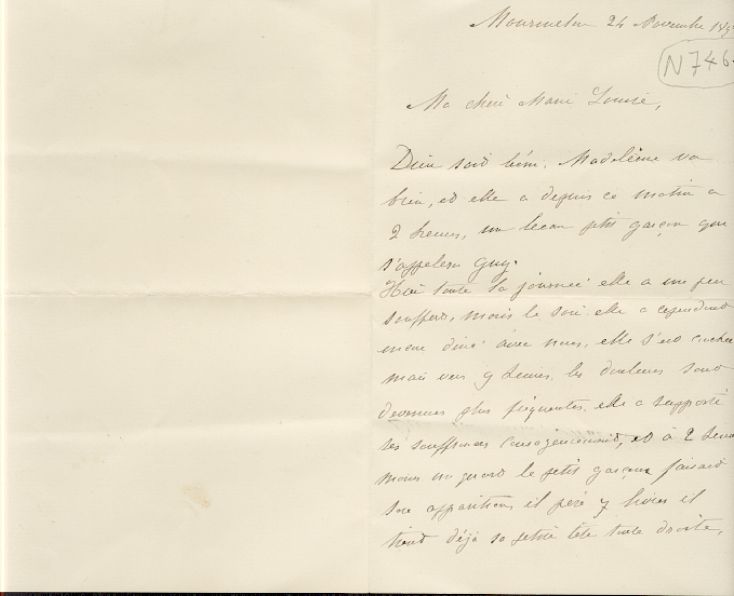 Mourmelon 24 Novembre 18
N 746
Ma chère Marie Louise,
Dieu soit béni. Madeleine va
bien, et elle a depuis ce matin à
2 heures, un beau ptit garçon qui
s'appelera Guy.
Hier toute la journée elle a un peu
souffert, mais le soir elle a cependant
encore diné avec nous, elle s'est couchée
mais vers 9 heures, les douleurs sont
devenues plus fréquentes, elle a supporté
ses souffrances courageusement, et à 2 heures
moins un quart le petit garçon faisait
son apparition, il pèse 7 livres et
tient déjà sa petite tête toute droite,